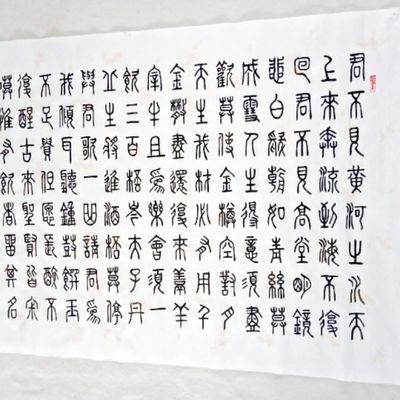 君不見黃河之水天
上來奔流到海不復
回君不見高堂明鏡
悲白髮朝如青絲暮
成雪人生得意須盡
歡莫使金樽空對月
天生我材必有用千
金散盡還復來烹羊
宰牛且爲樂會須一
飲三百杯岑夫子丹
丘生將進酒杯莫停
與君歌一曲請君爲
我傾耳聽鐘鼓饌玉
不足貴但願長醉不
復醒古來聖賢皆寂
寞惟有飲者留其名